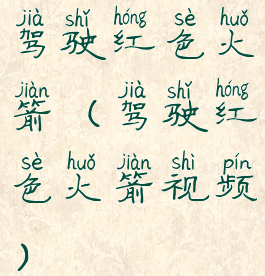 jià shǐ hóng sè huǒ
驾驶红色火
jiàn jià shǐ hóng
箭（驾驶红
sè huǒ jiàn shì pín
色火箭视频
）